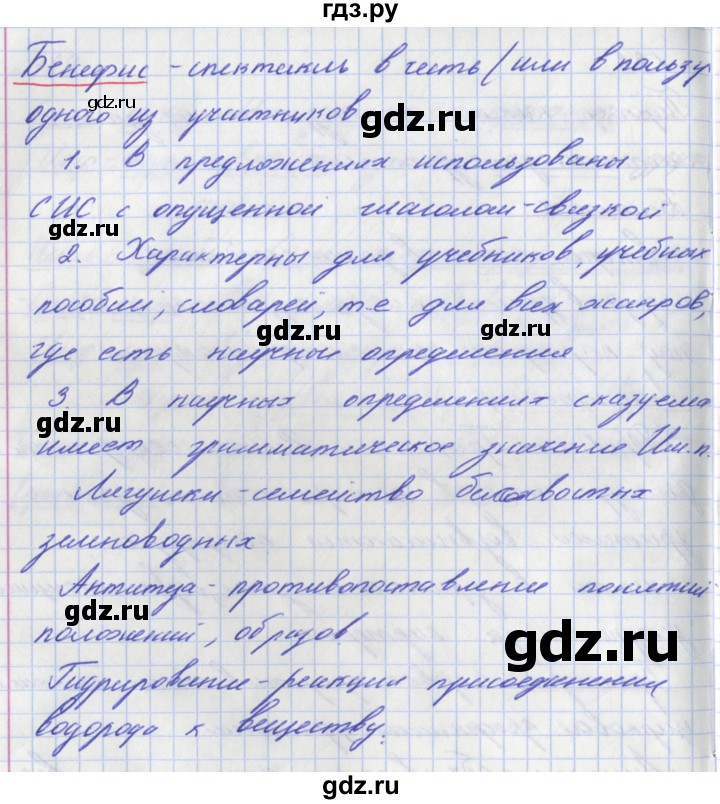 гдз.ру
Бенефис - спектакль в честь (или в пользу
одного из участников
gdz.ru
1. В предложениях использованы
СИС с опущенной глаголом-связкой
gdz.ru
2. Характерны для учебников, учебных
пособий, словарей, т.е для всех жанров,
gdz.ru gdz.ru
где есть научные определения
3 В научных определениях сказуема
gdz.ru
имеет грамматическое значение Им.п.
Лягушки - семейство бесхвостых
земноводных
Антитеза - противопоставление понятий
gdz.ru
положений, образов
gdz.ru
Гидрирование - реакции присоединения
водорода к веществу.
gdz.ru
gdz.ru